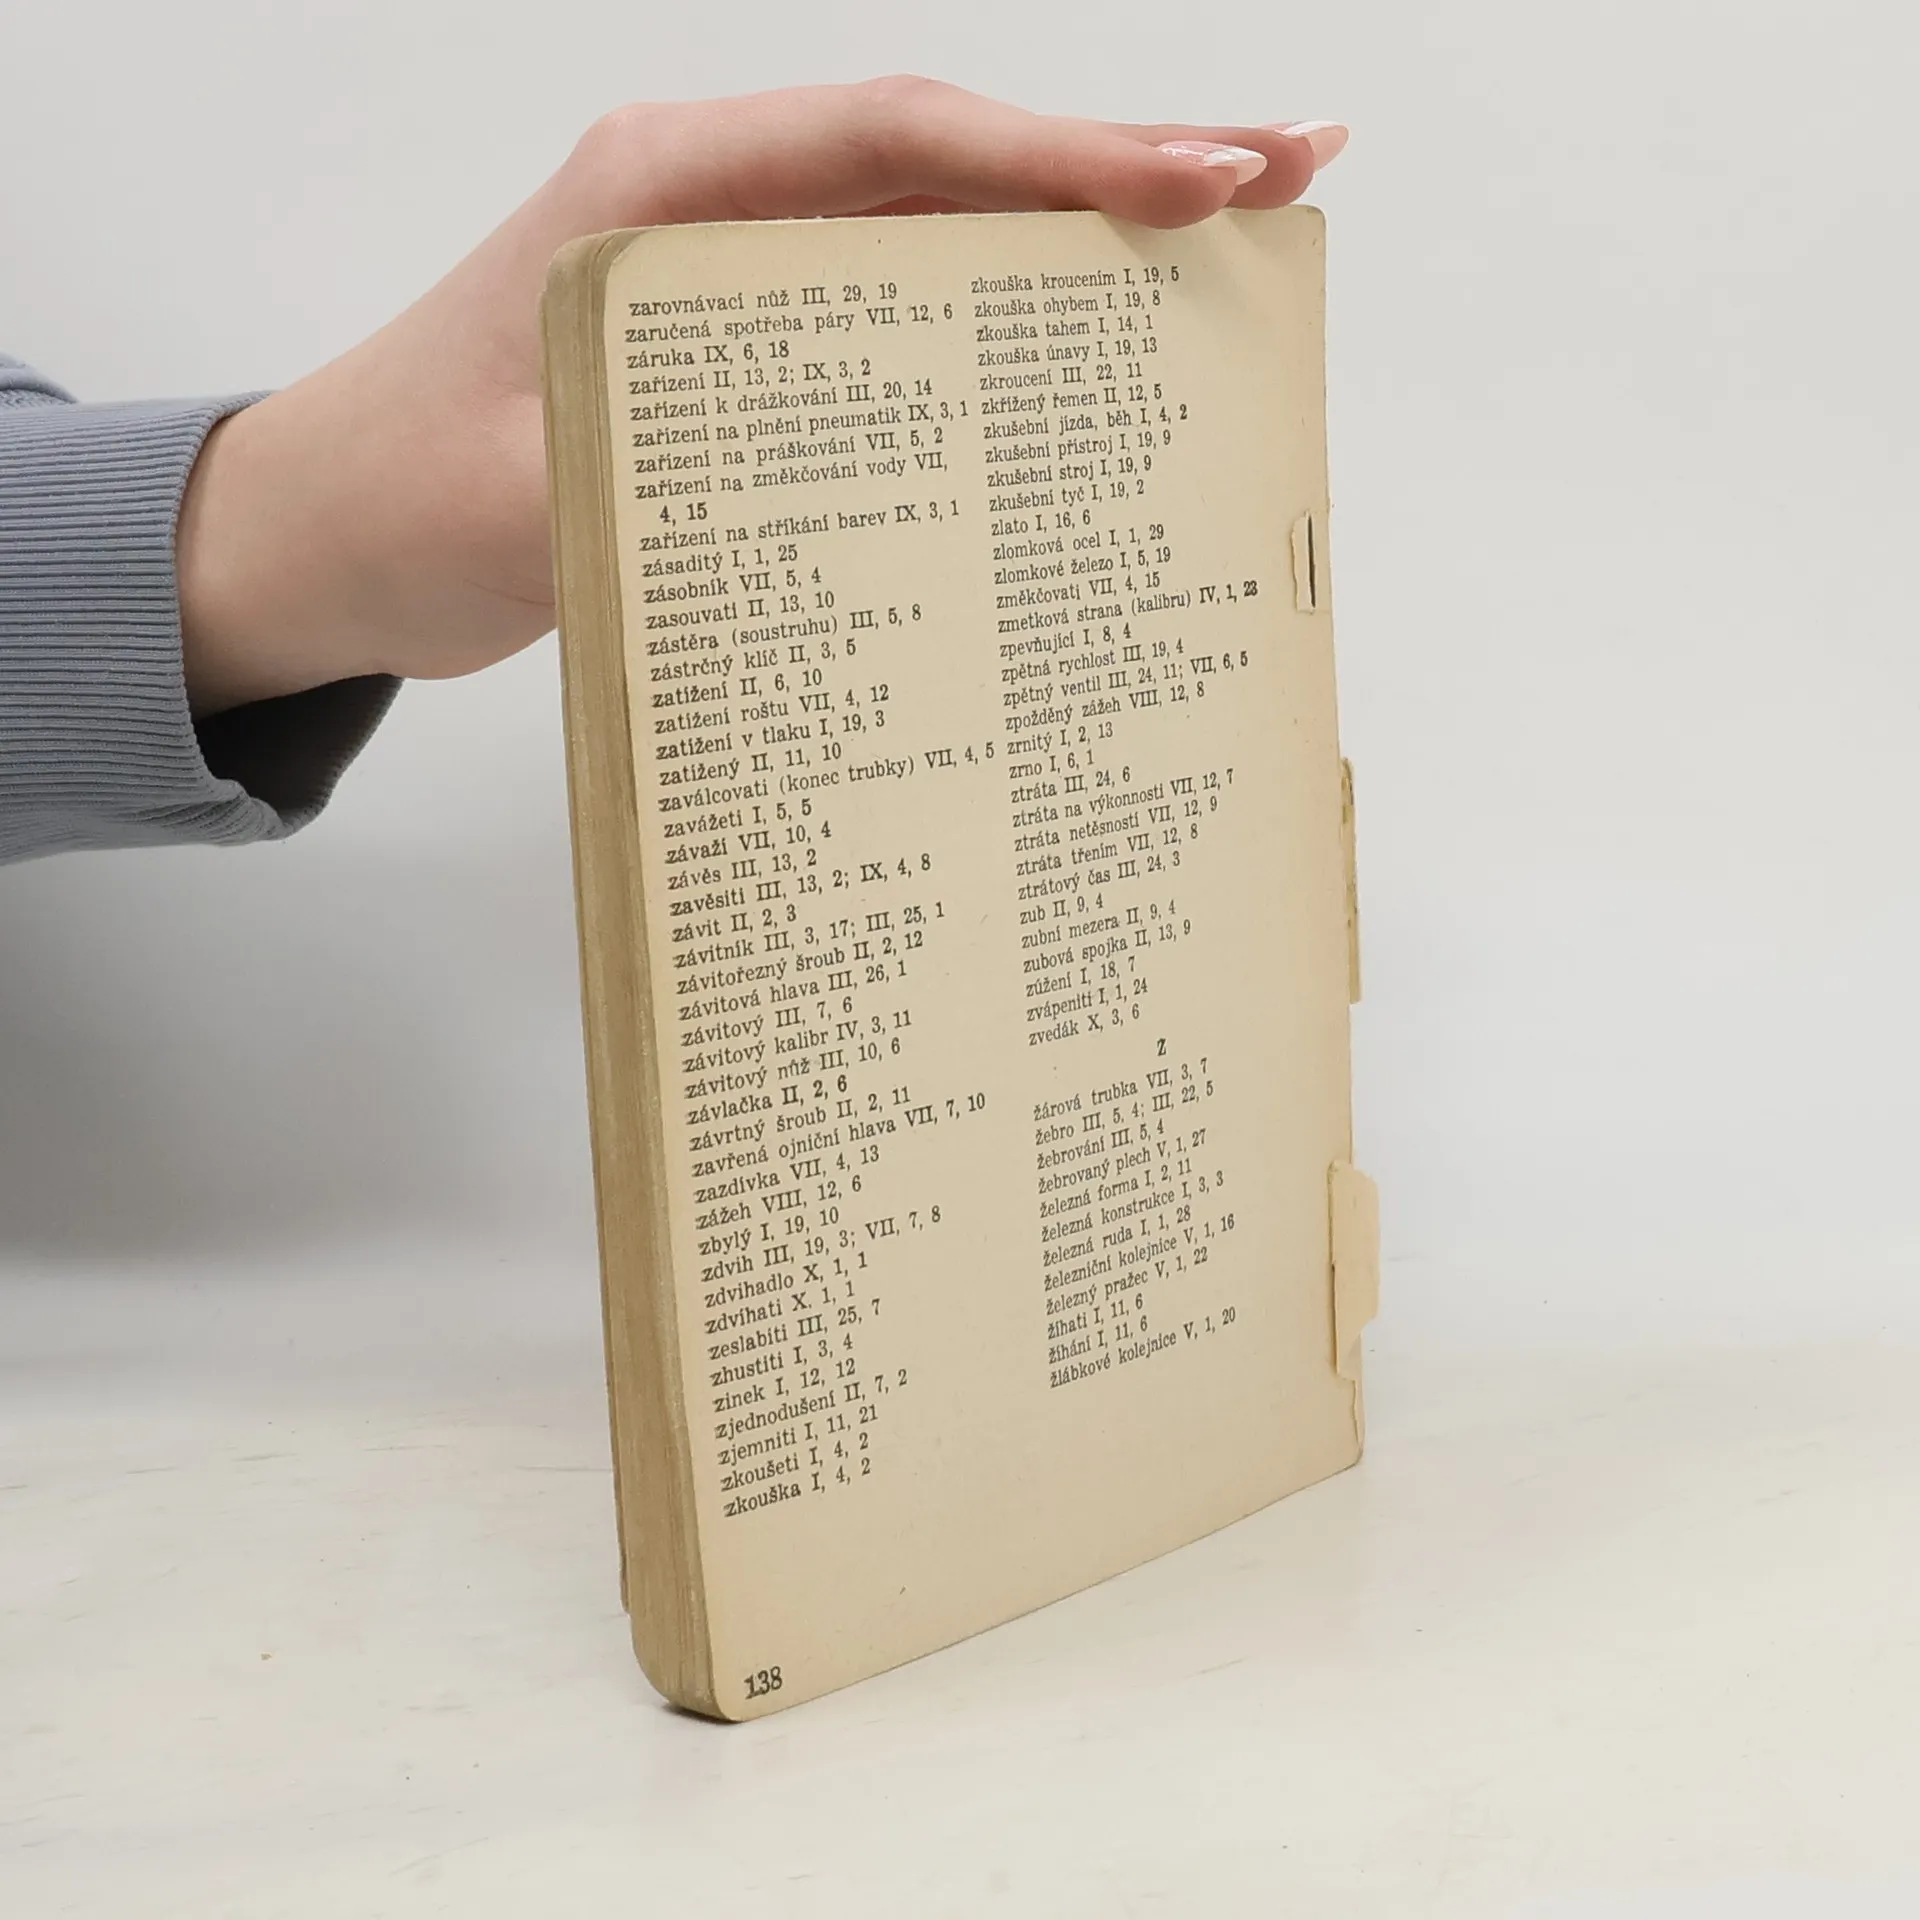 zarovnávací nůž III, 29, 19
zaručená spotřeba páry VII, 12, 6
záruka IX, 6, 18
zařízení II, 13, 2; IX, 3, 2
zařízení k drážkování III, 20, 14
zařízení na plnění pneumatik IX, 3, 1
zařízení na práškování VII, 5, 2
zařízení na změkčování vody VII,
4, 15
zařízení na stříkání barev IX, 3, 1
zásaditý I, 1, 25
zásobník VII, 5, 4
zasouvati II, 13, 10
zástěra (soustruhu) III, 5, 8
zástrčný klíč II, 3, 5
zatížení II, 6, 10
zatížení roštu VII, 4, 12
zatížení v tlaku I, 19, 3
zatížený II, 11, 10
zaválcovati (konec trubky) VII, 4, 5
zavážeti I, 5, 5
závaží VII, 10, 4
závěs III, 13, 2
zavěsiti III, 13, 2; IX, 4, 8
závit II, 2, 3
závitník III, 3, 17; III, 25, 1
závitořezný šroub II, 2, 12
závitová hlava III, 26, 1
závitový III, 7, 6
závitový kalibr IV, 3, 11
závitový nůž III, 10, 6
závlačka II, 2, 6
závrtný šroub II, 2, 11
zavřená ojniční hlava VII, 7, 10
zazdívka VII, 4, 13
zážeh VIII, 12, 6
zbylý I, 19, 10
zdvih III, 19, 3; VII, 7, 8
zdvihadlo X, 1, 1
zdvíhati X, 1, 1
zeslabiti III, 25, 7
zhustiti I, 3, 4
zinek I, 12, 12
zjednodušení II, 7, 2
zjemniti I, 11, 21
zkoušeti I, 4, 2
zkouška I, 4, 2
zkouška kroucením I, 19, 5
zkouška ohybem I, 19, 8
zkouška tahem I, 14, 1
zkouška únavy I, 19, 13
zkroucení III, 22, 11
zkřížený řemen II, 12, 5
zkušební jízda, běh I, 4, 2
zkušební přístroj I, 19, 9
zkušební stroj I, 19, 9
zkušební tyč I, 19, 2
zlato I, 16, 6
zlomková ocel I, 1, 29
zlomkové železo I, 5, 19
změkčovati VII, 4, 15
zmetková strana (kalibru) IV, 1, 23
zpevňující I, 8, 4
zpětná rychlost III, 19, 4
zpětný ventil III, 24, 11; VII, 6, 5
zpožděný zážeh VIII, 12, 8
zrnitý I, 2, 13
zrno I, 6, 1
ztráta III, 24, 6
ztráta na výkonnosti VII, 12, 7
ztráta netěsností VII, 12, 9
ztráta třením VII, 12, 8
ztrátový čas III, 24, 3
zub II, 9, 4
zubní mezera II, 9, 4
zubová spojka II, 13, 9
zúžení I, 18, 7
zvápeniti I, 1, 24
zvedák X, 3, 6
Ž
žárová trubka VII, 3, 7
žebro III, 5, 4; III, 22, 5
žebrování III, 5, 4
žebrovaný plech V, 1, 27
železná forma I, 2, 11
železná konstrukce I, 3, 3
železná ruda I, 1, 28
železniční kolejnice V, 1, 16
železný pražec V, 1, 22
žíhati I, 11, 6
žíhání I, 11, 6
žlábkové kolejnice V, 1, 20
138